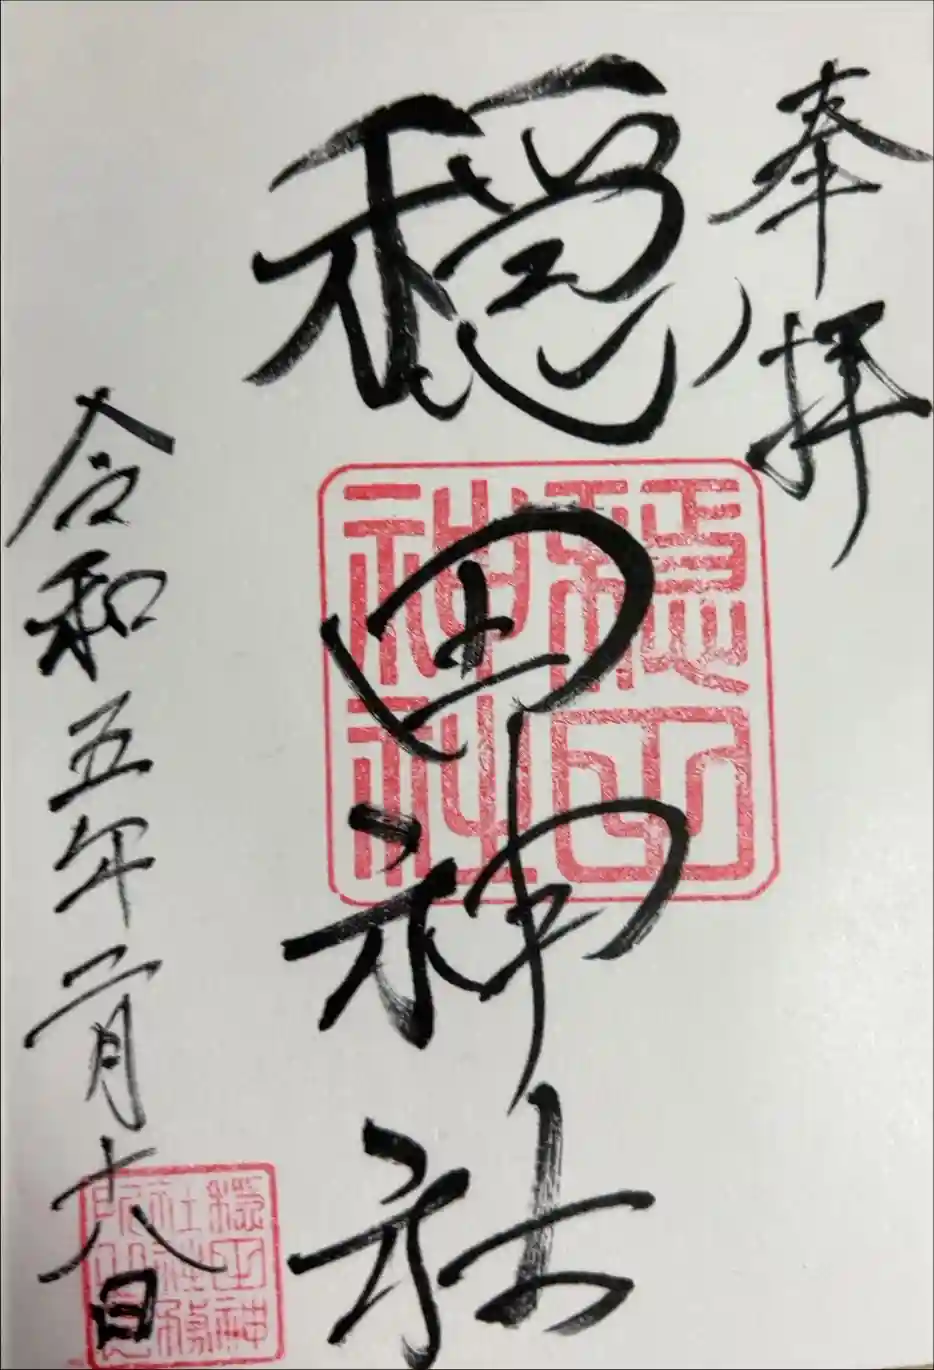 奉拝
穏田神社
穏田神社
令和五年二月十八日
穏田神社社務所之印